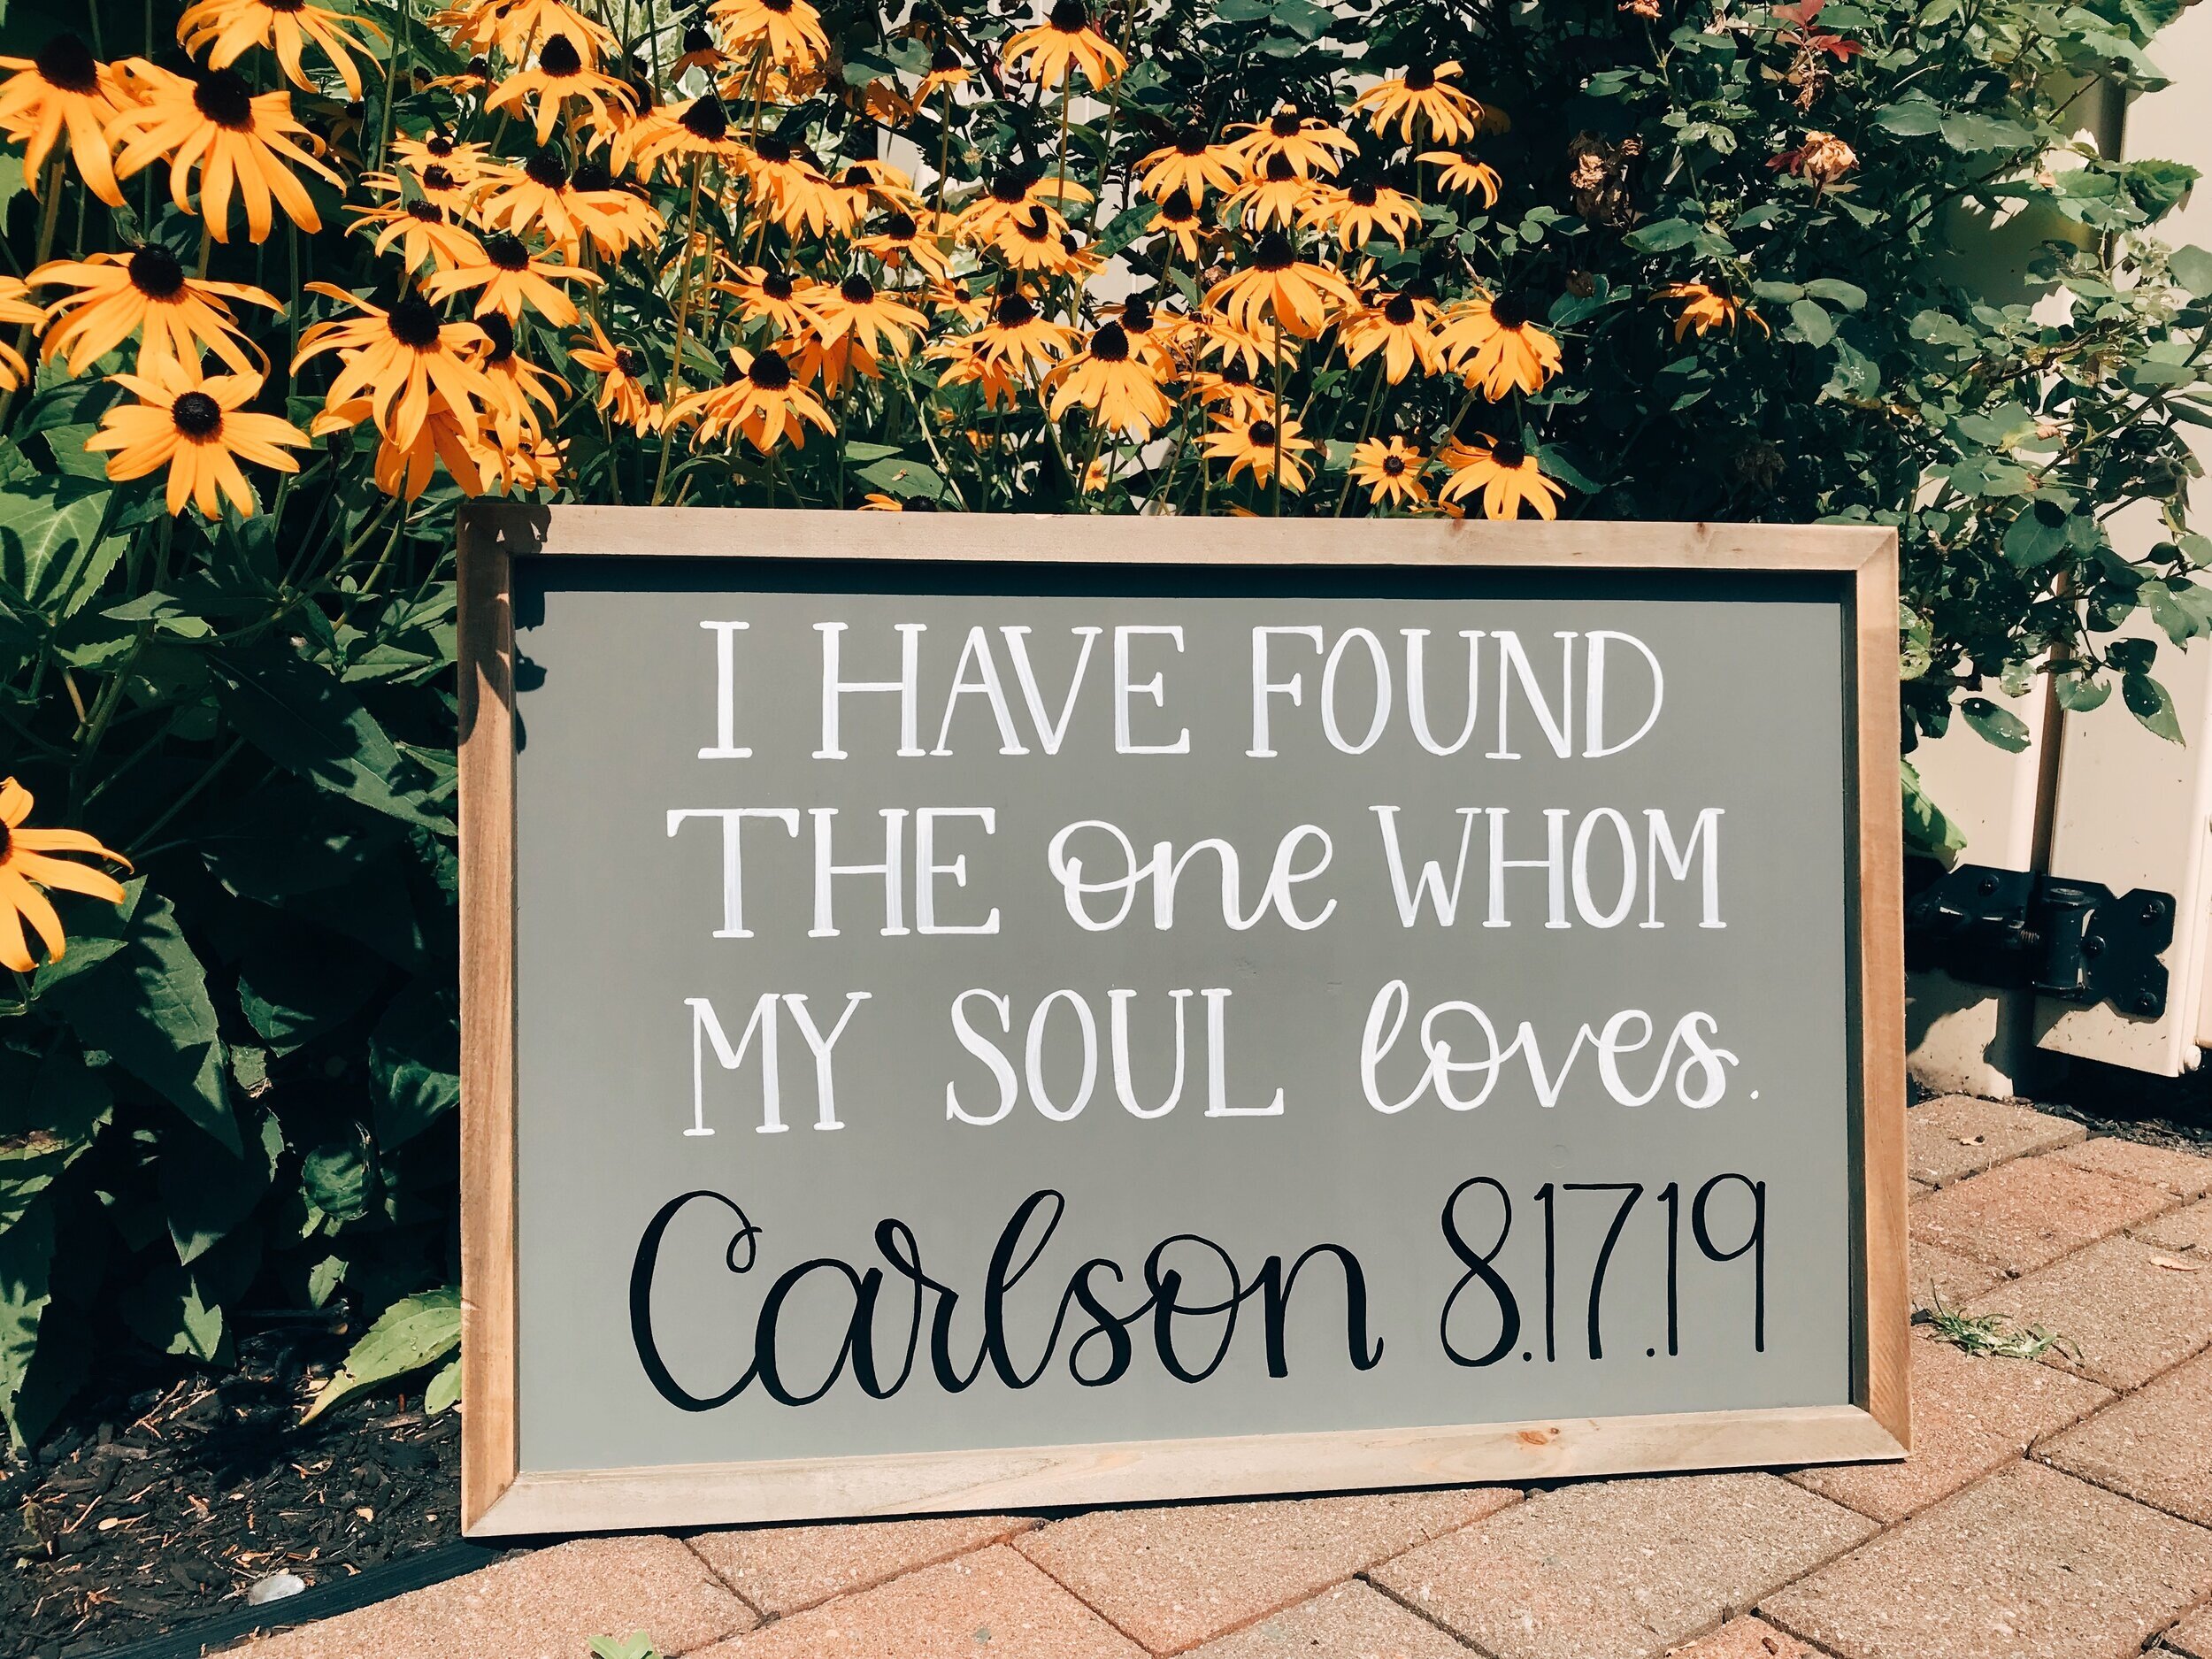 I HAVE FOUND
THE one WHOM
MY SOUL loves.
Carlson 8.17.19